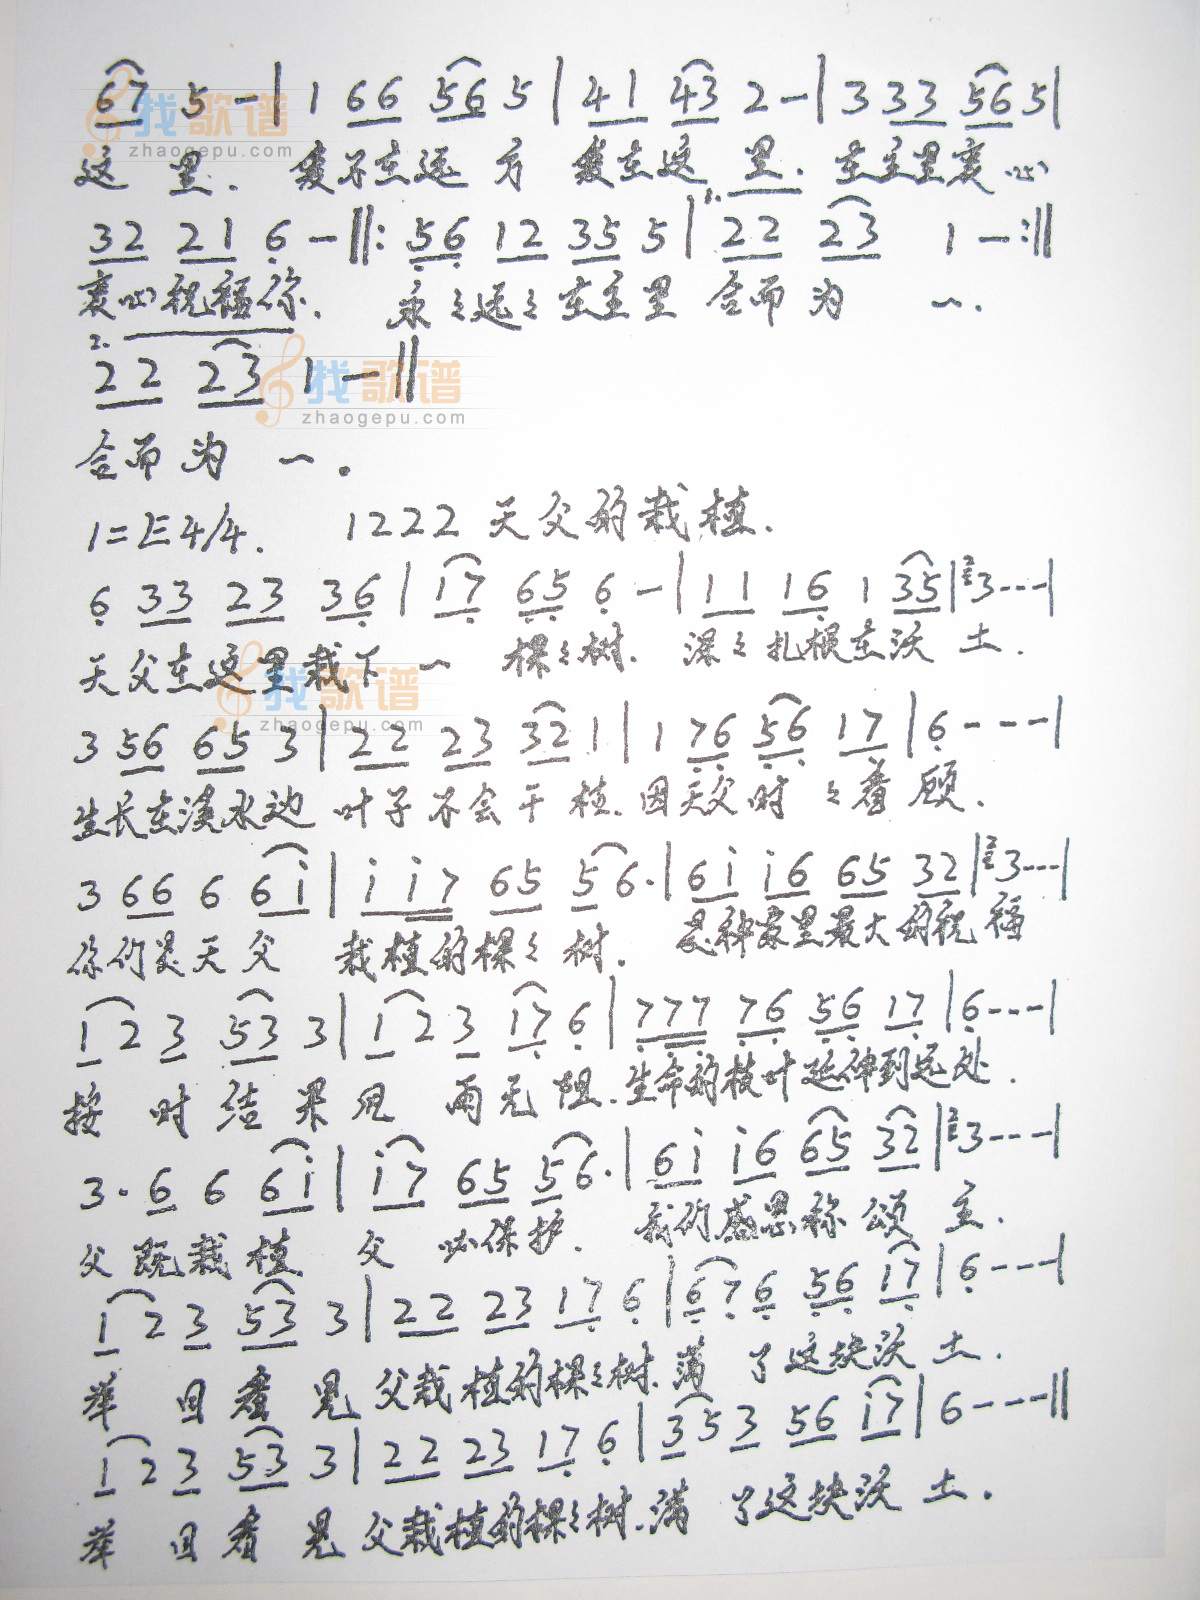 67 5 - | 1 66 56 5 | 41 43 2 - | 3 33 56 5 |
找歌谱
zhaogepu.com
这里. 爱不在远方 爱在这里. 在主里衷心
32 21 6 - ‖: 56 12 35 5 | 1. 22 23 1 - :‖
衷心祝福你. 永々远々在主里合而为一.
2. 22 23 1 - ‖
找歌谱
zhaogepu.com
合而为一。
1=E 4/4. 1222 天父的栽植.
6 33 23 36 | 17 65 6 - | 11 16 1 35 | 3 - - - |
天父在这里栽下一棵々树. 深々扎根在沃土.
找歌谱
zhaogepu.com
3 56 65 3 | 22 23 32 1 | 1 76 56 17 | 6 - - - |
生长在溪水边 叶子不会干枯. 因天父时々看顾.
3 66 6 6i | i i7 65 56· | 6i i6 65 32 | 3 - - - |
你们是天父 栽植的棵々树. 是神家里最大的祝福
1 2 3 53 3 | 1 2 3 17 6 | 777 76 56 17 | 6 - - - |
按时结果见雨无阻. 生命的枝叶延伸到远处.
3· 6 6 6i | i7 65 56· | 6i i6 65 32 | 3 - - - |
父既栽植 父必保护. 我们感恩称颂主.
1 2 3 53 3 | 22 23 17 6 | 6 7 6 56 17 | 6 - - - |
举目看见父栽植的棵々树. 满了这块沃土.
1 2 3 53 3 | 22 23 17 6 | 3 5 3 56 i7 | 6 - - - ‖
举目看见父栽植的棵々树. 满了这块沃土.